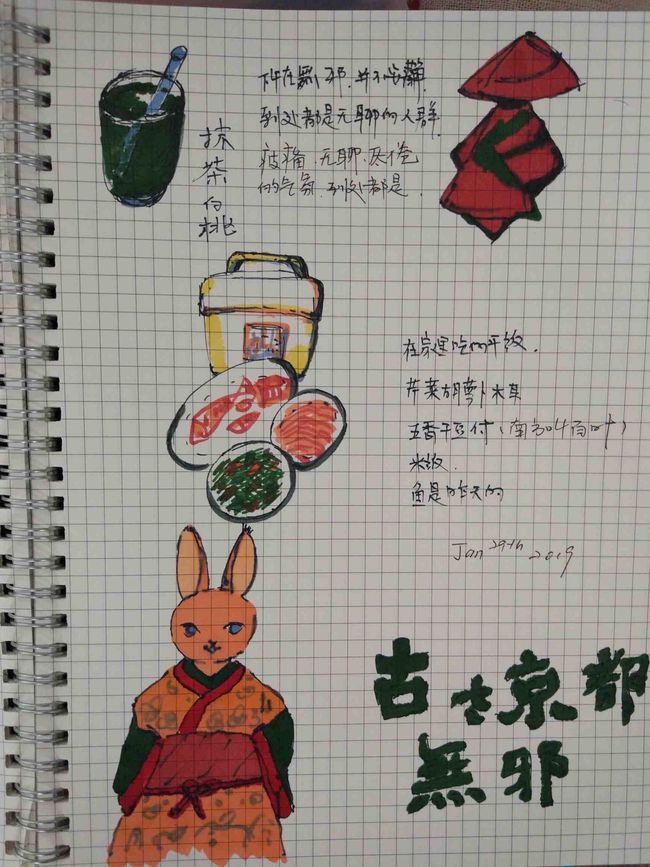 抹茶白桃
所在無邪.并不安静.
到处都是无聊的人群.
疲痛.无聊.厌倦
的气氛.到处都是.
在家里吃的午饭.
芹菜胡萝卜木耳
五香干豆付(南方叫百叶)
米饭.
鱼是昨天的
Jan 29th 2019
古き京都
無邪